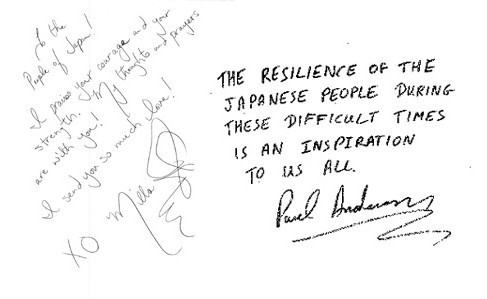 To the
People of Japan!
I praise your courage and your
strength. My thoughts and prayers
are with you!
I send you so much love!
Milla
XO
THE RESILIENCE OF THE
JAPANESE PEOPLE DURING
THESE DIFFICULT TIMES
IS AN INSPIRATION
TO US ALL.
Paul Anderson